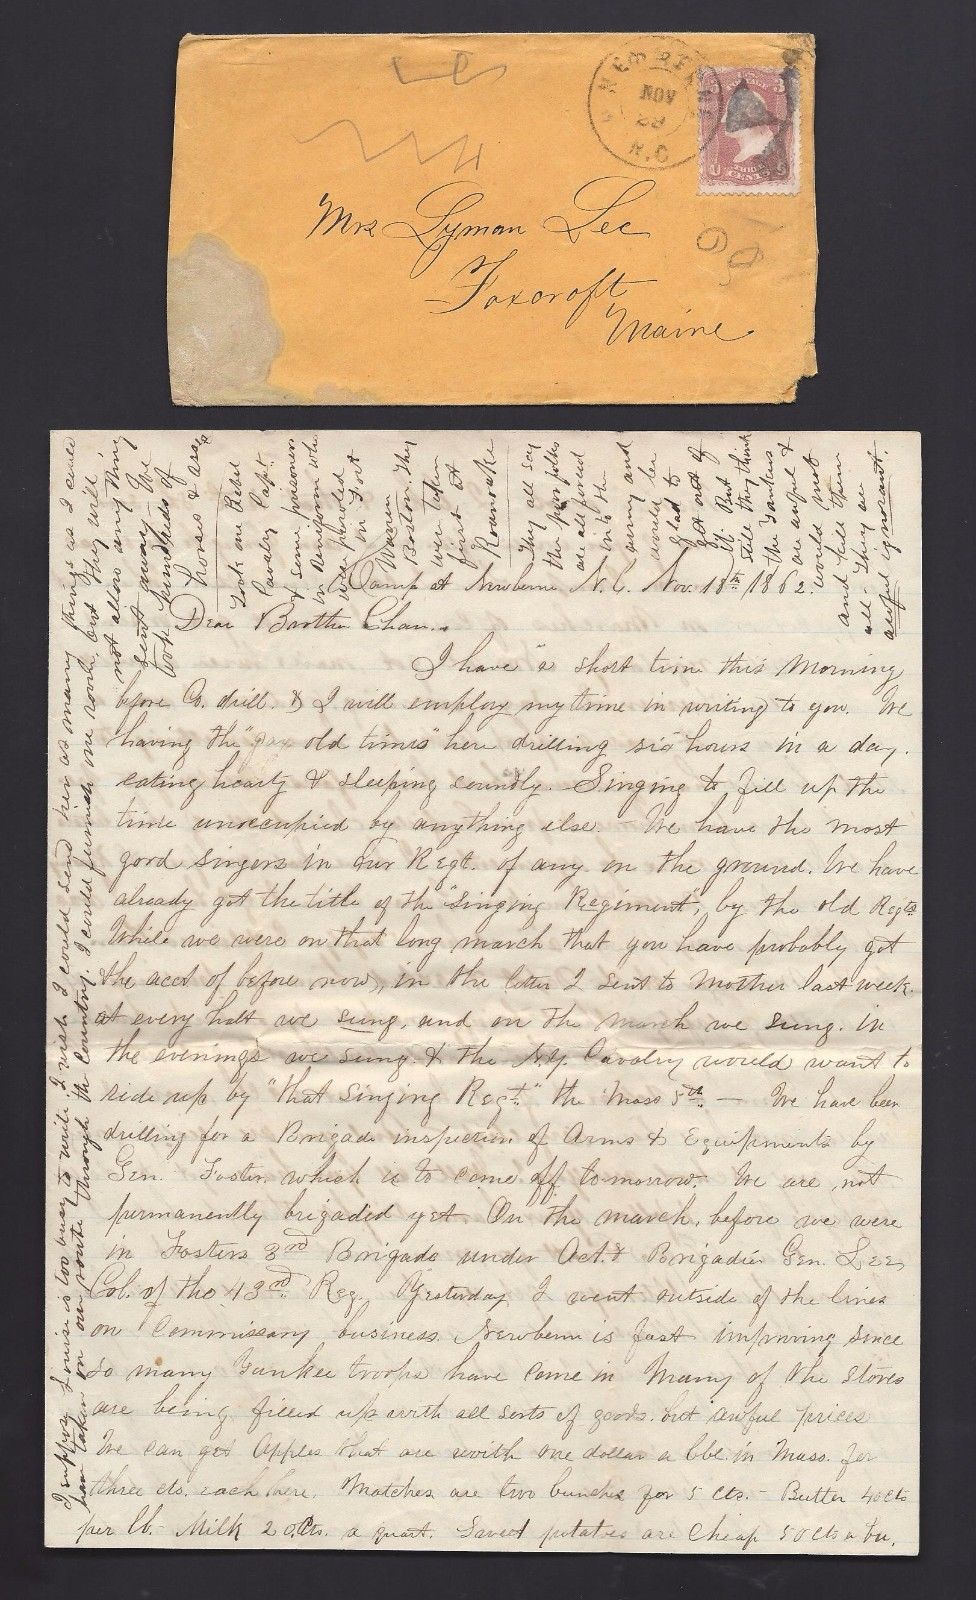 NEW BERN
NOV
29
N.C
THREE
CENTS
Mrs Lyman Lee
Foxcroft
Maine
Camp at Newbern N.C. Nov. 18th 1862.
Dear Brother Chan.
I have a short time this Morning
before Co. drill. & I will employ my time in writing to you. We
having the "gay old times" here drilling six hours in a day.
eating hearty & sleeping soundly. Singing to fill up the
time unoccupied by anything else. We have the most
good singers in our Regt. of any on the ground. We have
already got the title of the "Singing Regiment", by the old Regts
While we were on that long march that you have probably got
the acct of before now, in the letter I sent to Mother last week.
at every halt we sung, and on the march we sung. in
the evenings we sung. & the N.Y. Cavalry would want to
ride up by "that Singing Regt." the Mass 5th. — We have been
drilling for a Brigade inspection of Arms & Equipments by
Gen. Foster which is to come off tomorrow. We are not
permanently brigaded yet. On the march, before we were
in Fosters 3rd Brigade under Act. Brigadier Gen. Lee,
Col. of the 43rd Reg. Yesterday I went outside of the lines
on Commissary business. Newbern is fast improving since
so many Yankee troops have come in Many of the stores
are being filled up with all sorts of goods. but awful prices
We can get Apples that are worth one dollar a bbl. in Mass. for
three cts. each here. Matches are two bunches for 5 cts. - Butter 40 cts
per lb. - Milk 20 cts. a quart. Sweet potatoes are cheap 50 cts a bu.
I suppose Louise is too busy to write. I wish I could send her as many things as I could
have taken on our route through the Country. I could furnish one room, but they will
not allow any thing
sent away - We
took hundreds of
horses & asses
Took one Rebel
Cavalry Capt.
& some prisoners
in uniform who
were parolled
in Fort
Warren
Boston. They
were taken
first at
Roanoke
They all say
the poor folks
are all forced
into the
army and
would be
glad to
get out of
it. But
still they think
the Yankees
are awful &
would
and kill them
all. They are
awful ignorant.